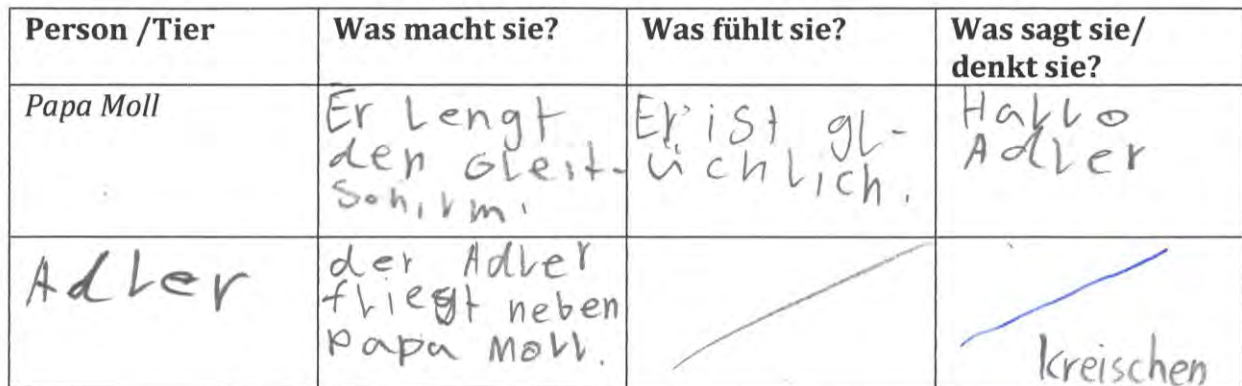 Person /Tier
Was macht sie?
Was fühlt sie?
Was sagt sie/
denkt sie?
Papa Moll
Er Lengt
den Gleit-
Schirm.
Er ist gl-
üchlich.
Hallo
Adler
Adler
der Adler
fliegt neben
Papa Moll.
kreischen